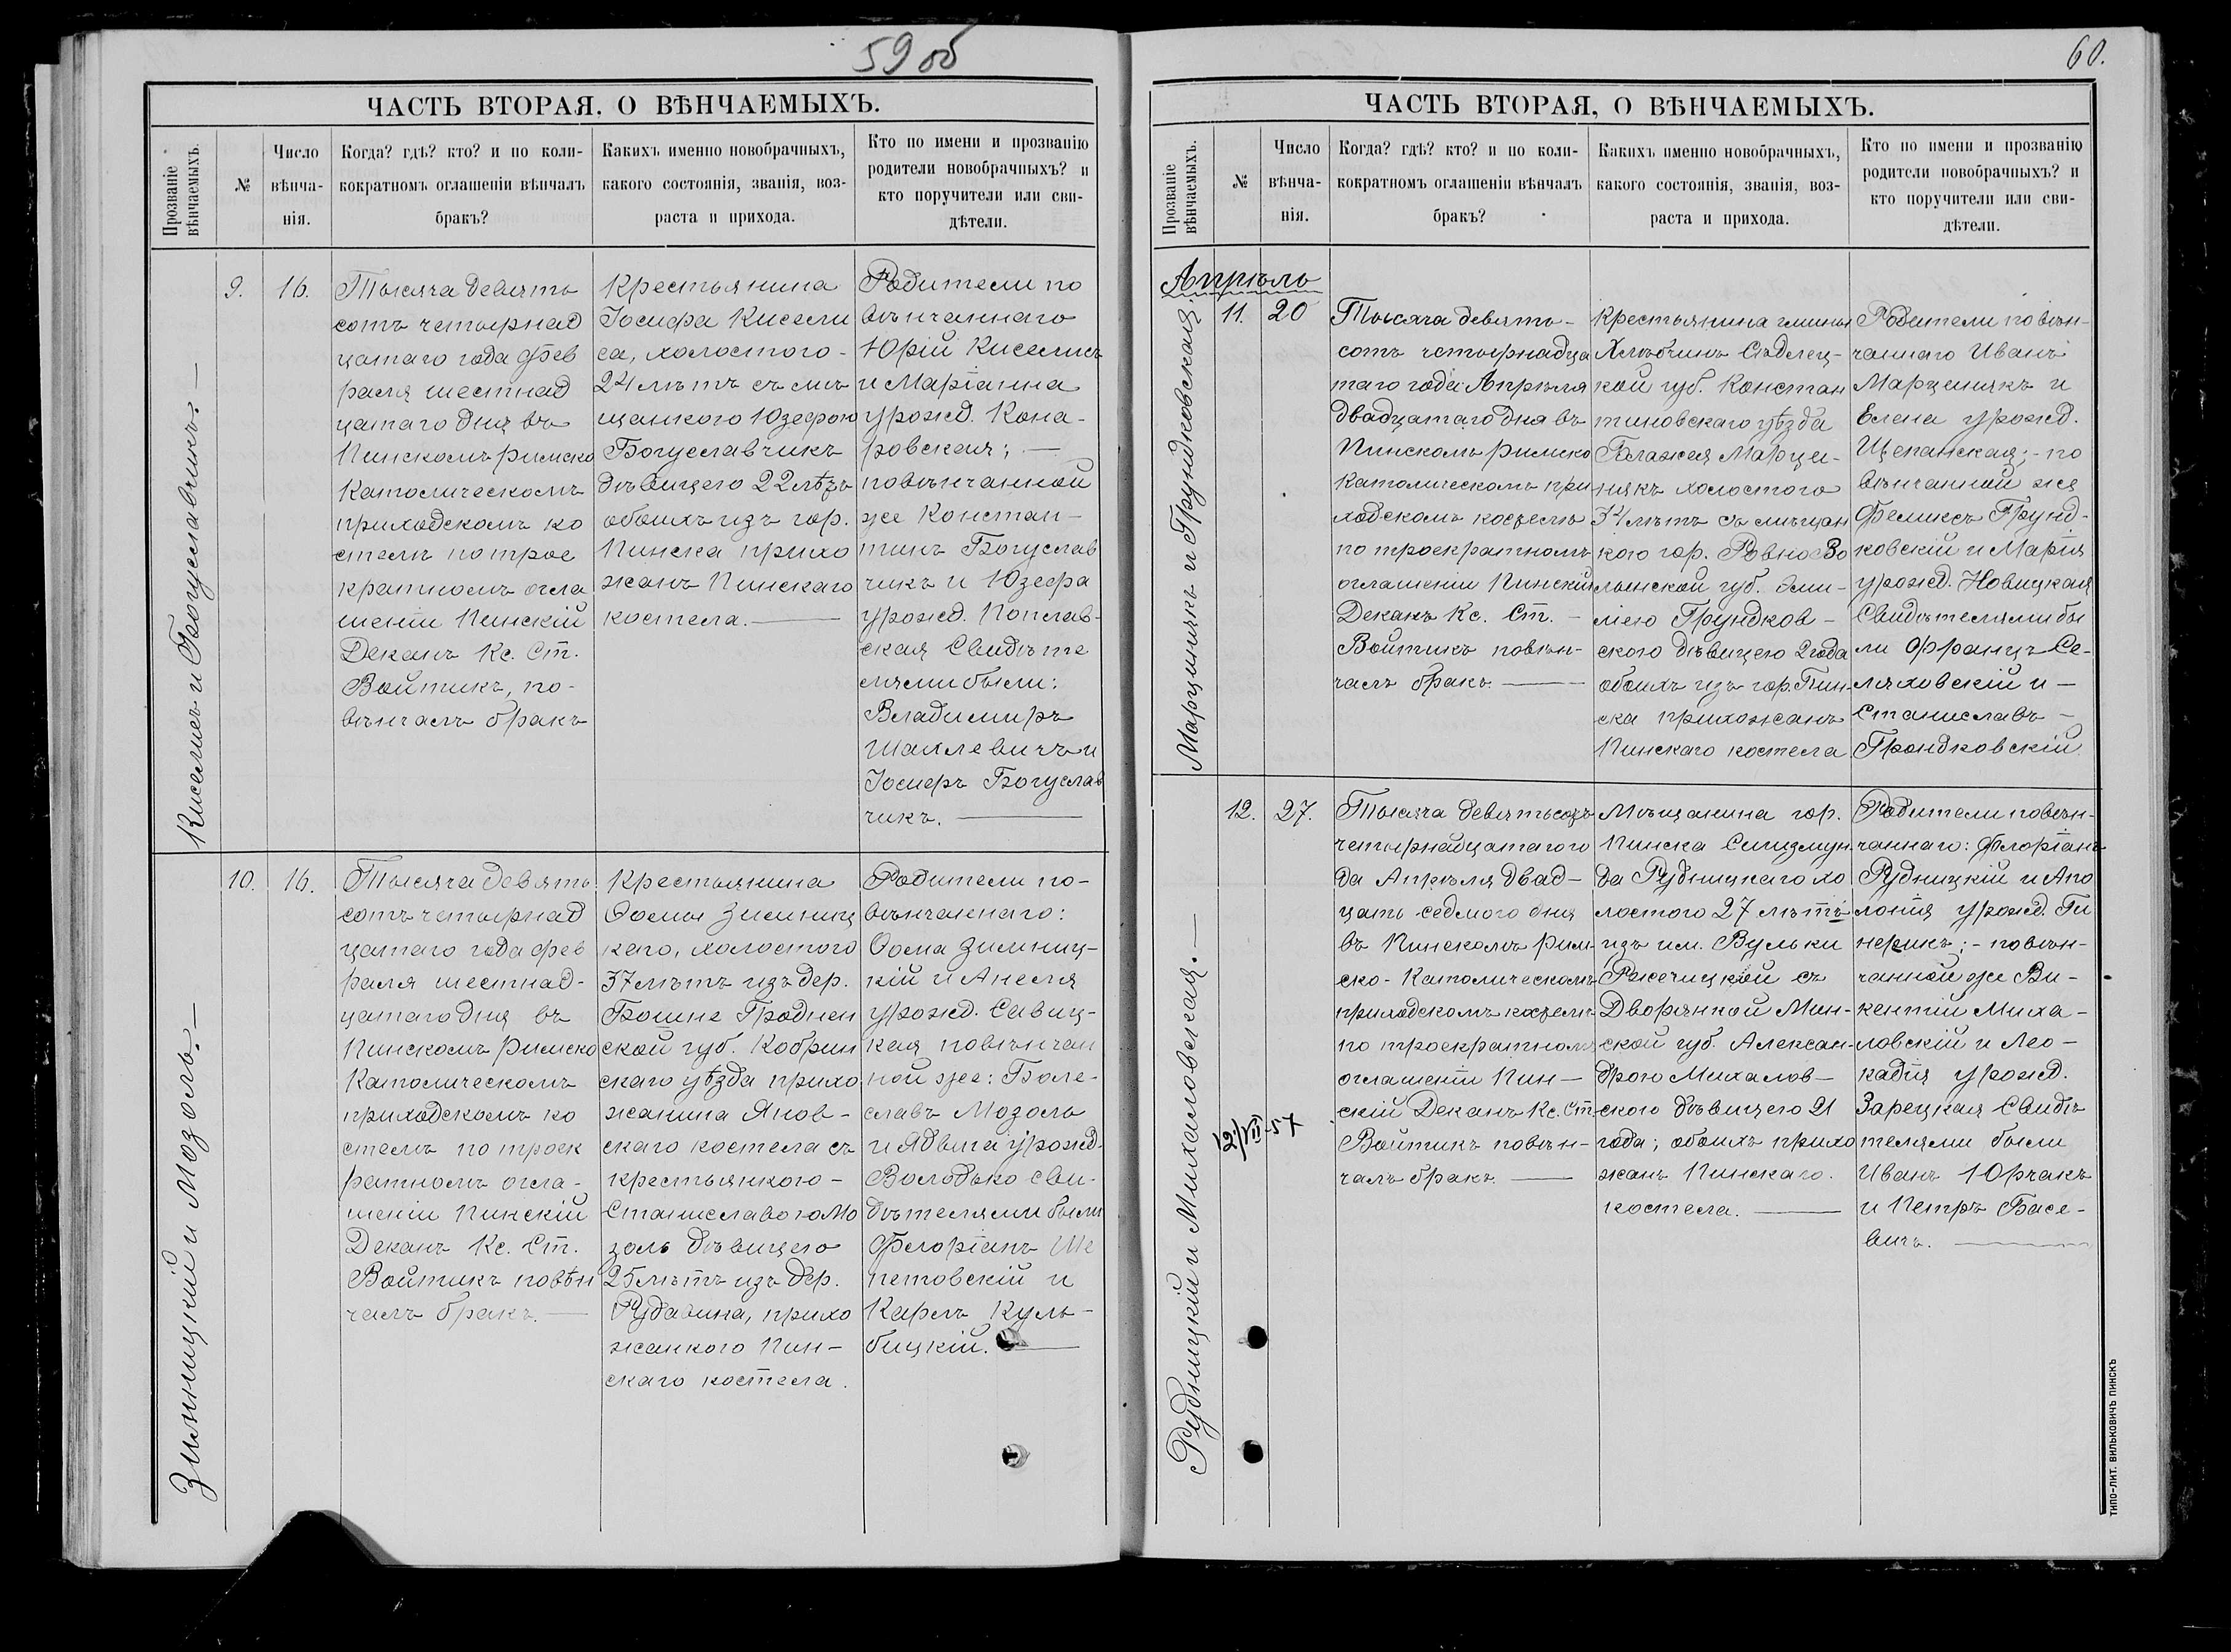 59 об
ЧАСТЬ ВТОРАЯ. О ВѢНЧАЕМЫХЪ.
Прозваніе
вѣнчаемыхъ.
№
Число
вѣнча-
нія.
Когда? гдѣ? кто? и по коли-
кократномъ оглашеніи вѣнчалъ
бракъ?
Какихъ именно новобрачныхъ,
какого состоянія, званія, воз-
раста и прихода.
Кто по имени и прозванію
родители новобрачныхъ? и
кто поручители или сви-
дѣтели.
Киселисъ и Богуславчикъ. —
9.
16.
Тысяча девять
сотъ четырнад
цатаго года фев
раля шестнад
цатаго дня въ
Пинскомъ римско
Католическомъ
приходскомъ ко
стелѣ по трое
кратномъ огла
шеніи Пинскій
Деканъ Кс. Ст.
Войтикъ, по-
вѣнчалъ бракъ
Крестьянина
Іосифа Кисели
са, холостого -
24 лѣтъ съ мѣ
щанкого Юзефою
Богуславчикъ
дѣвицего 22 лѣтъ
обоихъ изъ гор.
Пинска прихо
жанъ Пинскаго
костела. —
Родители по
вѣнчаннаго
Юрій Киселисъ
и Маріанна
урожд. Кона-
ровская; —
повѣнчанной
же Констан-
тинъ Богуслав
чикъ и Юзефа
урожд. Поплав-
ская Свидѣте
лями были:
Владимиръ
Шахлевичъ и
Іосифъ Богуслав
чикъ. —
Зимницкій и Мозоль. —
10.
16.
Тысяча девять
сотъ четырнад
цатаго года фев
раля шестнад-
цатаго дня въ
Пинскомъ римско
Католическомъ
приходскомъ ко
стелѣ по троек
ратномъ огла-
шеніи Пинскій
Деканъ Кс. Ст.
Войтикъ повѣн
чалъ бракъ. —
Крестьянина
Ѳомы Зимниц
каго, холостого
37 лѣтъ изъ дер.
Гроднен
ской губ. Кобрин
скаго уѣзда прихо
жанина Янов-
скаго костела съ
крестьянкого -
Станиславого Мо
золь дѣвицего
25 лѣтъ изъ дер.
Рудавина, прихо
жанкого Пин-
скаго костела.
Родители по-
вѣнчаннаго:
Ѳома Зимниц-
кій и Анеля
урожд. Савиц-
кая повѣнчан
ной же: Боле-
славъ Мозоль
и Ядвига урожд.
Володько сви-
дѣтелями были
Флоріанъ Ше
петовскій и
Карлъ Куль-
бицкій. —
60.
ЧАСТЬ ВТОРАЯ, О ВѢНЧАЕМЫХЪ.
Прозваніе
вѣнчаемыхъ.
№
Число
вѣнча-
нія.
Когда? гдѣ? кто? и по коли-
кократномъ оглашеніи вѣнчалъ
бракъ?
Какихъ именно новобрачныхъ,
какого состоянія, званія, воз-
раста и прихода.
Кто по имени и прозванію
родители новобрачныхъ? и
кто поручители или сви-
дѣтели.
Апрѣль
Марцинякъ и Грундковская.
11.
20
Тысяча девять-
сотъ четырнадца
таго года Апрѣля
двадцатаго дня въ
Пинскомъ римско
Католическомъ при
ходскомъ костелѣ
по троекратномъ
оглашеніи Пинскій
Деканъ Кс. Ст. -
Войтикъ повѣн-
чалъ бракъ. —
Крестьянина гмины
Хлѣбчинъ Сѣдлец-
кой губ. Констан
тиновскаго уѣзда
Блажея Марци-
някъ холостого
34 лѣтъ съ мѣщан
кого гор. Ровно Во
лынской губ. Эми-
ліею Грундков-
ского дѣвицего 2 года
обоихъ изъ гор. Пин-
ска прихожанъ
Пинскаго костела
Родители повѣн-
чаннаго Иванъ
Марцинякъ и
Елена урожд.
Щепанская; - по
вѣнчанной же
Феликсъ Грунд-
ковскій и Марія
урожд. Новицкая
Свидѣтелями бы
ли Францъ Се-
ляховскій и -
Станиславъ -
Грондковскій
Рудницкій и Михаловская. —
12.
27.
12/VII-57
Тысяча девятьсотъ
четырнадцатаго го
да Апрѣля двад-
цать седмого дня
въ Пинскомъ рим-
ско-Католическомъ
приходскомъ костелѣ
по троекратномъ
оглашеніи Пин-
скій Деканъ Кс. Ст.
Войтикъ повѣн-
чалъ бракъ. —
Мѣщанина гор.
Пинска Сигизмун
да Рудницкаго хо
лостого 27 лѣтъ
изъ им. Вульки
съ
Дворянкой Мин-
ской губ. Алексан-
дрою Михалов-
ского дѣвицего 21
года; обоихъ прихо
жанъ Пинскаго.
костела. —
Родители повѣн-
чаннаго: Флоріанъ
Рудницкій и Апо
лонія урожд. Ги
нерикъ; - повѣн-
чанной же Ви-
кентій Миха-
ловскій и Лео-
кадія урожд.
Зарецкая Свидѣ
телями были
Иванъ Юрчакъ
и Петръ Басе-
вичъ. —
ТИПО-ЛИТ. ВИЛЬКОВИЧЪ ПИНСКЪ